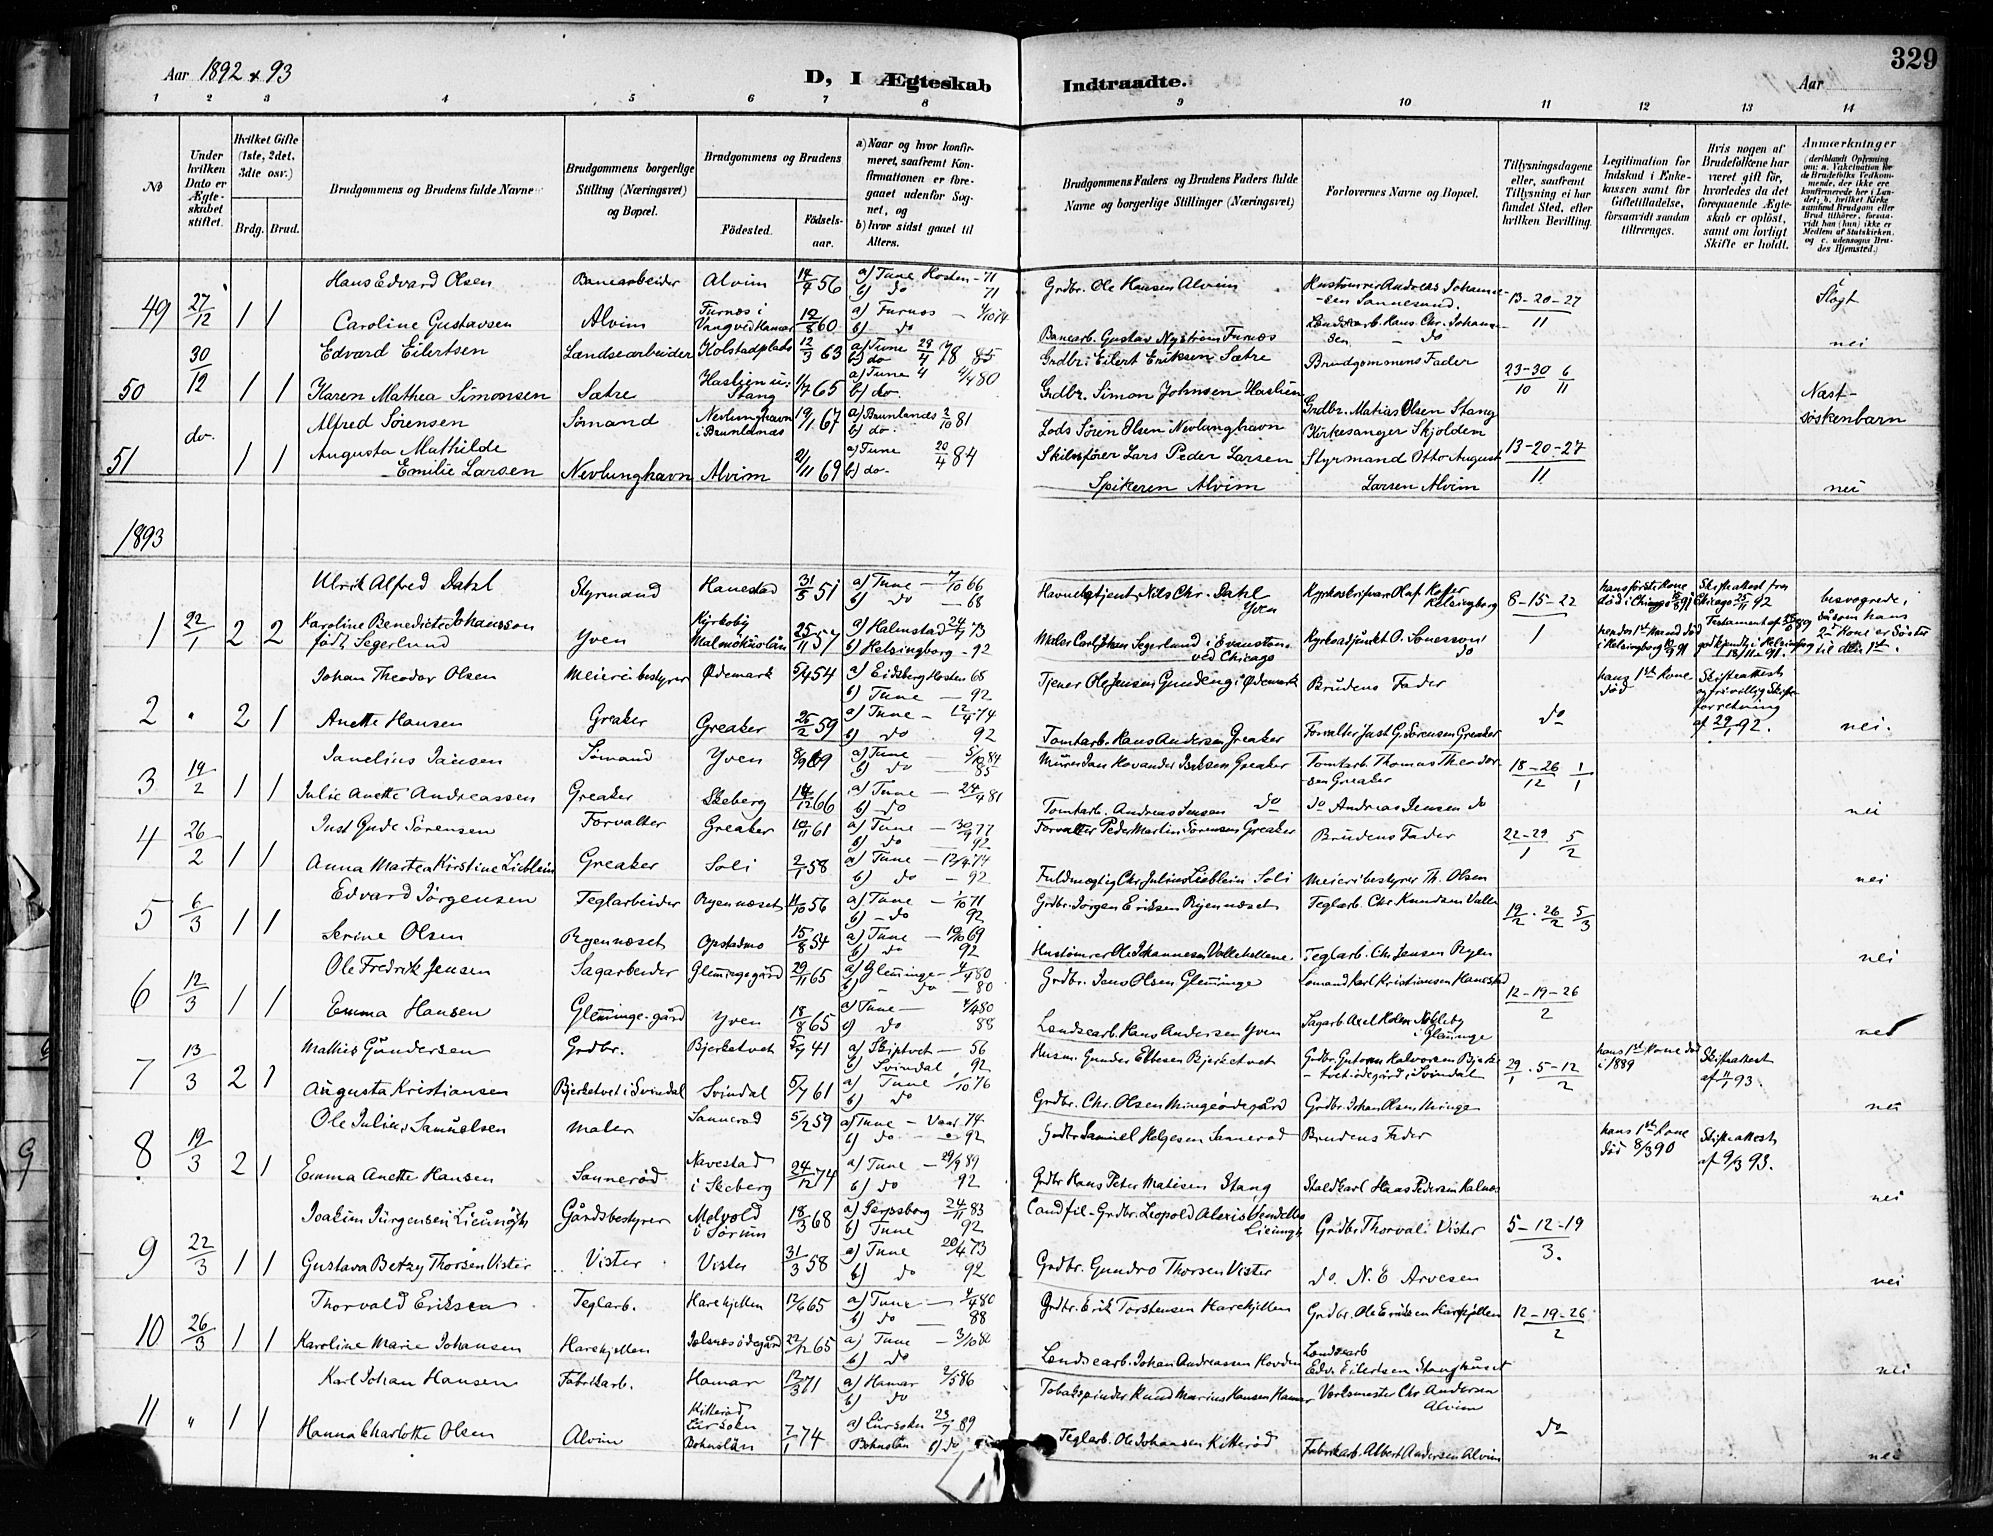 Aar 1892 & 93
D, I Ægteskab Indtraadte.
Aar
329
1 2 3 4 5 6 7 8 9 10 11 12 13 14
No
Under hvilken Dato er Ægteskabet stiftet.
Hvilket Gifte (1ste, 2det, 3dte osv.)
Brdg. Brud.
Brudgommens og Brudens fulde Navne
Brudgommens borgerlige Stilling (Næringsvei) og Bopæl.
Brudgommens og Brudens
Fødested. Fødselsaar.
a) Naar og hvor konfirmeret, saafremt Konfirmationen er foregaaet udenfor Sognet, og
b) hvor sidst gaaet til Alters.
Brudgommens Faders og Brudens Faders fulde Navne og borgerlige Stillinger (Næringsvei)
Forlovernes Navne og Bopæl.
Tillysningsdagene eller, saafremt Tillysning ei har fundet Sted, efter hvilken Bevilling.
Legitimation for Indskud i Enkekassen samt for Giftetilladelse, forsaavidt saadan tiltrænges.
Hvis nogen af Brudefolkene har været gift før, hvorledes da det foregaaende Ægteskab er opløst, samt om lovligt Skifte er holdt.
Anmærkninger
49 27/12 1 1
Hans Edvard Olsen Banearbeider Alvim 14/4 56 a) Tune Høsten - 71 b) do 71 Grdbr. Ole Hansen Alvim Hustømrer Andreas Johannesen Sannesund. 13-20-27/11 i Slægt
Caroline Gustavsen Alvim Furnæs i Vang ved Hamar 12/8 60 a) Furnæs b) do Banearb. Gustav Nystrøm Furnæs Landsearb. Hans Chr. Johansen do nei
50 30/12 1 1
Edvard Eilertsen Landsearbeider Holstadplads 12/3 63 a) Tune b) do 85 Grdbr. Eilert Eriksen Sætre Brudgommens Fader 23-30/10 6/11 Næst-søskenbarn
Karen Mathea Simonsen Sætre Haslien u: Stang 65 a) Tune b) do. 80 Grdbr. Simon Johnsen Haslien Grdbr. Matias Olsen Stang
51 do. 1 1
Alfred Sørensen Sømand Nevlunghavn i Brunlanæs 19/1 67 a) Brunlanæs 2/10 81 b) do. Lods Søren Olsen Nevlunghavn Kirkesanger Skjolden 13-20-27/11
Augusta Mathilde Emilie Larsen Nevlunghavn Alvim 2/11 69 a) Tune 20/4 84 b) do. Skibsfører Lars Peder Larsen Spikeren Alvim Styrmand Otto August Larsen Alvim nei
1893
1 22/1 2 2
Ulrik Alfred Dahl Styrmand Hanestad 31/5 51 a) Tune 7/10 66 b) do 68 Havnebetjent Nils Chr. Dahl Yven Helsingborg 8-15-22/1 hans første Kone død i Chicago Skifteattest fra Chicago 25/11 92 besvogrede, saasom hans 2den Kone er Søster til den 1ste.
Karoline Benedicte Johansson født Segerlund Yven Kyrkoby Malmöhuslän 25/11 57 a) Halmstad 24/7 73 b) Helsingborg - 92 Maler Carl Johan Segerlund i Evanston ved Chicago Kyrkoadjunkt O. Sonesson do hendes 1ste Mand død i Helsingborg
2 " 2 1
Johan Theodor Olsen Meieribestyrer Ødemark 5/4 54 a) Eidsberg Høsten 68 b) Tune 92 Tjener Ole Jensen Gundeng i Ødemark Brudens Fader do hans 1ste Kone død Skifteattest og frivillig Skifteforretning af 29/1 92.
Anette Hansen Greaker Greaker 26/2 59 a) Tune 12/4 74 b) do 92 Tomtarb. Hans Andersen Greaker Forvalter Just G. Sørensen Greaker nei.
3 14/2 1 1
Janelius Jansen Sømand Yven 8/9 69 a) Tune 5/10 84 b) do 85 Murer Jan Hovander Jansen Greaker Tomtarb. Thomas Theodorsen Greaker 18-26/12 1/1
Julie Anette Andreassen Greaker Skeberg 14/12 66 a) Tune 24/4 81 b) do Tomtarb. Andreas Jensen do do Andreas Jensen do nei
4 26/2 1 1
Just Gude Sørensen Forvalter Greaker 10/11 61 a) Tune 30/9 77 b) do 92 Forvalter Peder Martin Sørensen Greaker Brudens Fader 22-29/1 5/2
Anna Martea Kirstine Lieblein Greaker Soli 2/1 58 a) Tune 12/4 74 b) do 92 Fuldmægtig Chr. Julius Lieblein Soli Meieribestyrer Th. Olsen nei
5 6/3 1 1
Edvard Jørgensen Teglarbeider Ryennæset 11/10 56 a) Tune 1/10 71 b) do 92 Grdbr. Jørgen Eriksen Ryennæset Teglarb. Chr. Knudsen Valle 19/2 . 26/2 5/3
Serine Olsen Ryennæset Opstadmo 15/8 54 a) Tune 10/10 69 b) do 92 Hustømrer Ole Johannesen Vallehellene Teglarb. Chr. Jensen Ryen nei
6 12/3 1 1
Ole Fredrik Jensen Sagarbeider Glemmingegård 29/11 65 a) Glemminge 4/4 80 b) do 80 Grdbr. Jens Olsen Glemminge Sømand Karl Kristiansen Hanestad 12-19-26/2
Emma Hansen Glemminge-gård Yven 18/8 65 a) Tune 4/4 80 b) do 88 Landsearb. Hans Andersen Yven Sagarb. Axel Holm Nabbeby i Glemminge nei
7 13/3 2 1
Mathis Gundersen Grdbr. Bjerketvet 5/7 41 a) Skiptvet - 56 b) Svindal 92 Husm. Gunder Ellesen Bjerketvet Grdbr. Gutorm Halvorsen Bjerketvet ødegård i Svindal 29/1 . 5-12/2 hans 1ste Kone død i 1889 Skifteattest af 11/1 93.
Augusta Kristiansen Bjerketvet i Svindal Svindal 5/7 61 a) Tune 1/10 76 b) do Grdbr. Chr. Olsen Mingeødegård Grdbr. Johan Olsen Minge nei
8. 19/3 2 1
Ole Julius Samuelsen Maler Sannerød 5/2 59 a) Tune - Vaar 74 b) do 92 Grdbr. Samuel Helgesen Sannerød Brudens Fader hans 1ste Kone død 8/3 90 Skifteattest af 9/3 93.
Emma Anette Hansen Sannerød Navestad i Skeberg 24/12 74 a) Tune 29/9 89 b) do 92 Grdbr Hans Peter Matisen Stang Staldkarl Hans Pedersen Kalnæs nei
9 22/3 1 1
Joakim Jürgensen Lieungh Gårdsbestyrer Melvold i Sørum 18/3 68 a) Sarpsborg 24/11 83 b) Tune 92 Cand fil - Grdbr. Leopold Alexis Vendelbo Lieungh Grdbr. Thorvald Vister 5-12-19/3.
Gustava Betzy Thorsen Vister Vister Vister 31/3 58 a) Tune 20/4 73 b) do 92 Grdbr. Gundro Thorsen Vister do. N. E. Arvesen nei
10 26/3 1 1
Thorvald Eriksen Teglarb. Harehjellen 12/6 65 a) Tune 4/4 80 b) do 88 Grdbr. Erik Torstensen Harehjellen Grdbr. Ole Eriksen Harehjellen 12-19-26/2
Karoline Marie Johansen Harehjellen Jelsnæsødegård 22/12 65 a) Tune 3/10 b) do Landsearb. Johan Andreassen Hovden Landsearb Edv. Eilertsen Stanghuset nei
11 " 1 1
Karl Johan Hansen Fabrikarb. Hamar 12/3 71 a) Hamar 2/5 86 b) do Tobakspinder Knud Marius Hansen Hamar Verksmester Chr. Andersen Alvim do
Hanna Charlotte Olsen Alvim Kitterød Lursokn Bohuslän 7/1 74 a) Lursokn 23/7 89 Bohuslän b) do Teglarb. Ole Johansen Kitterød Fabrikarb. Albert Andersen Alvim nei